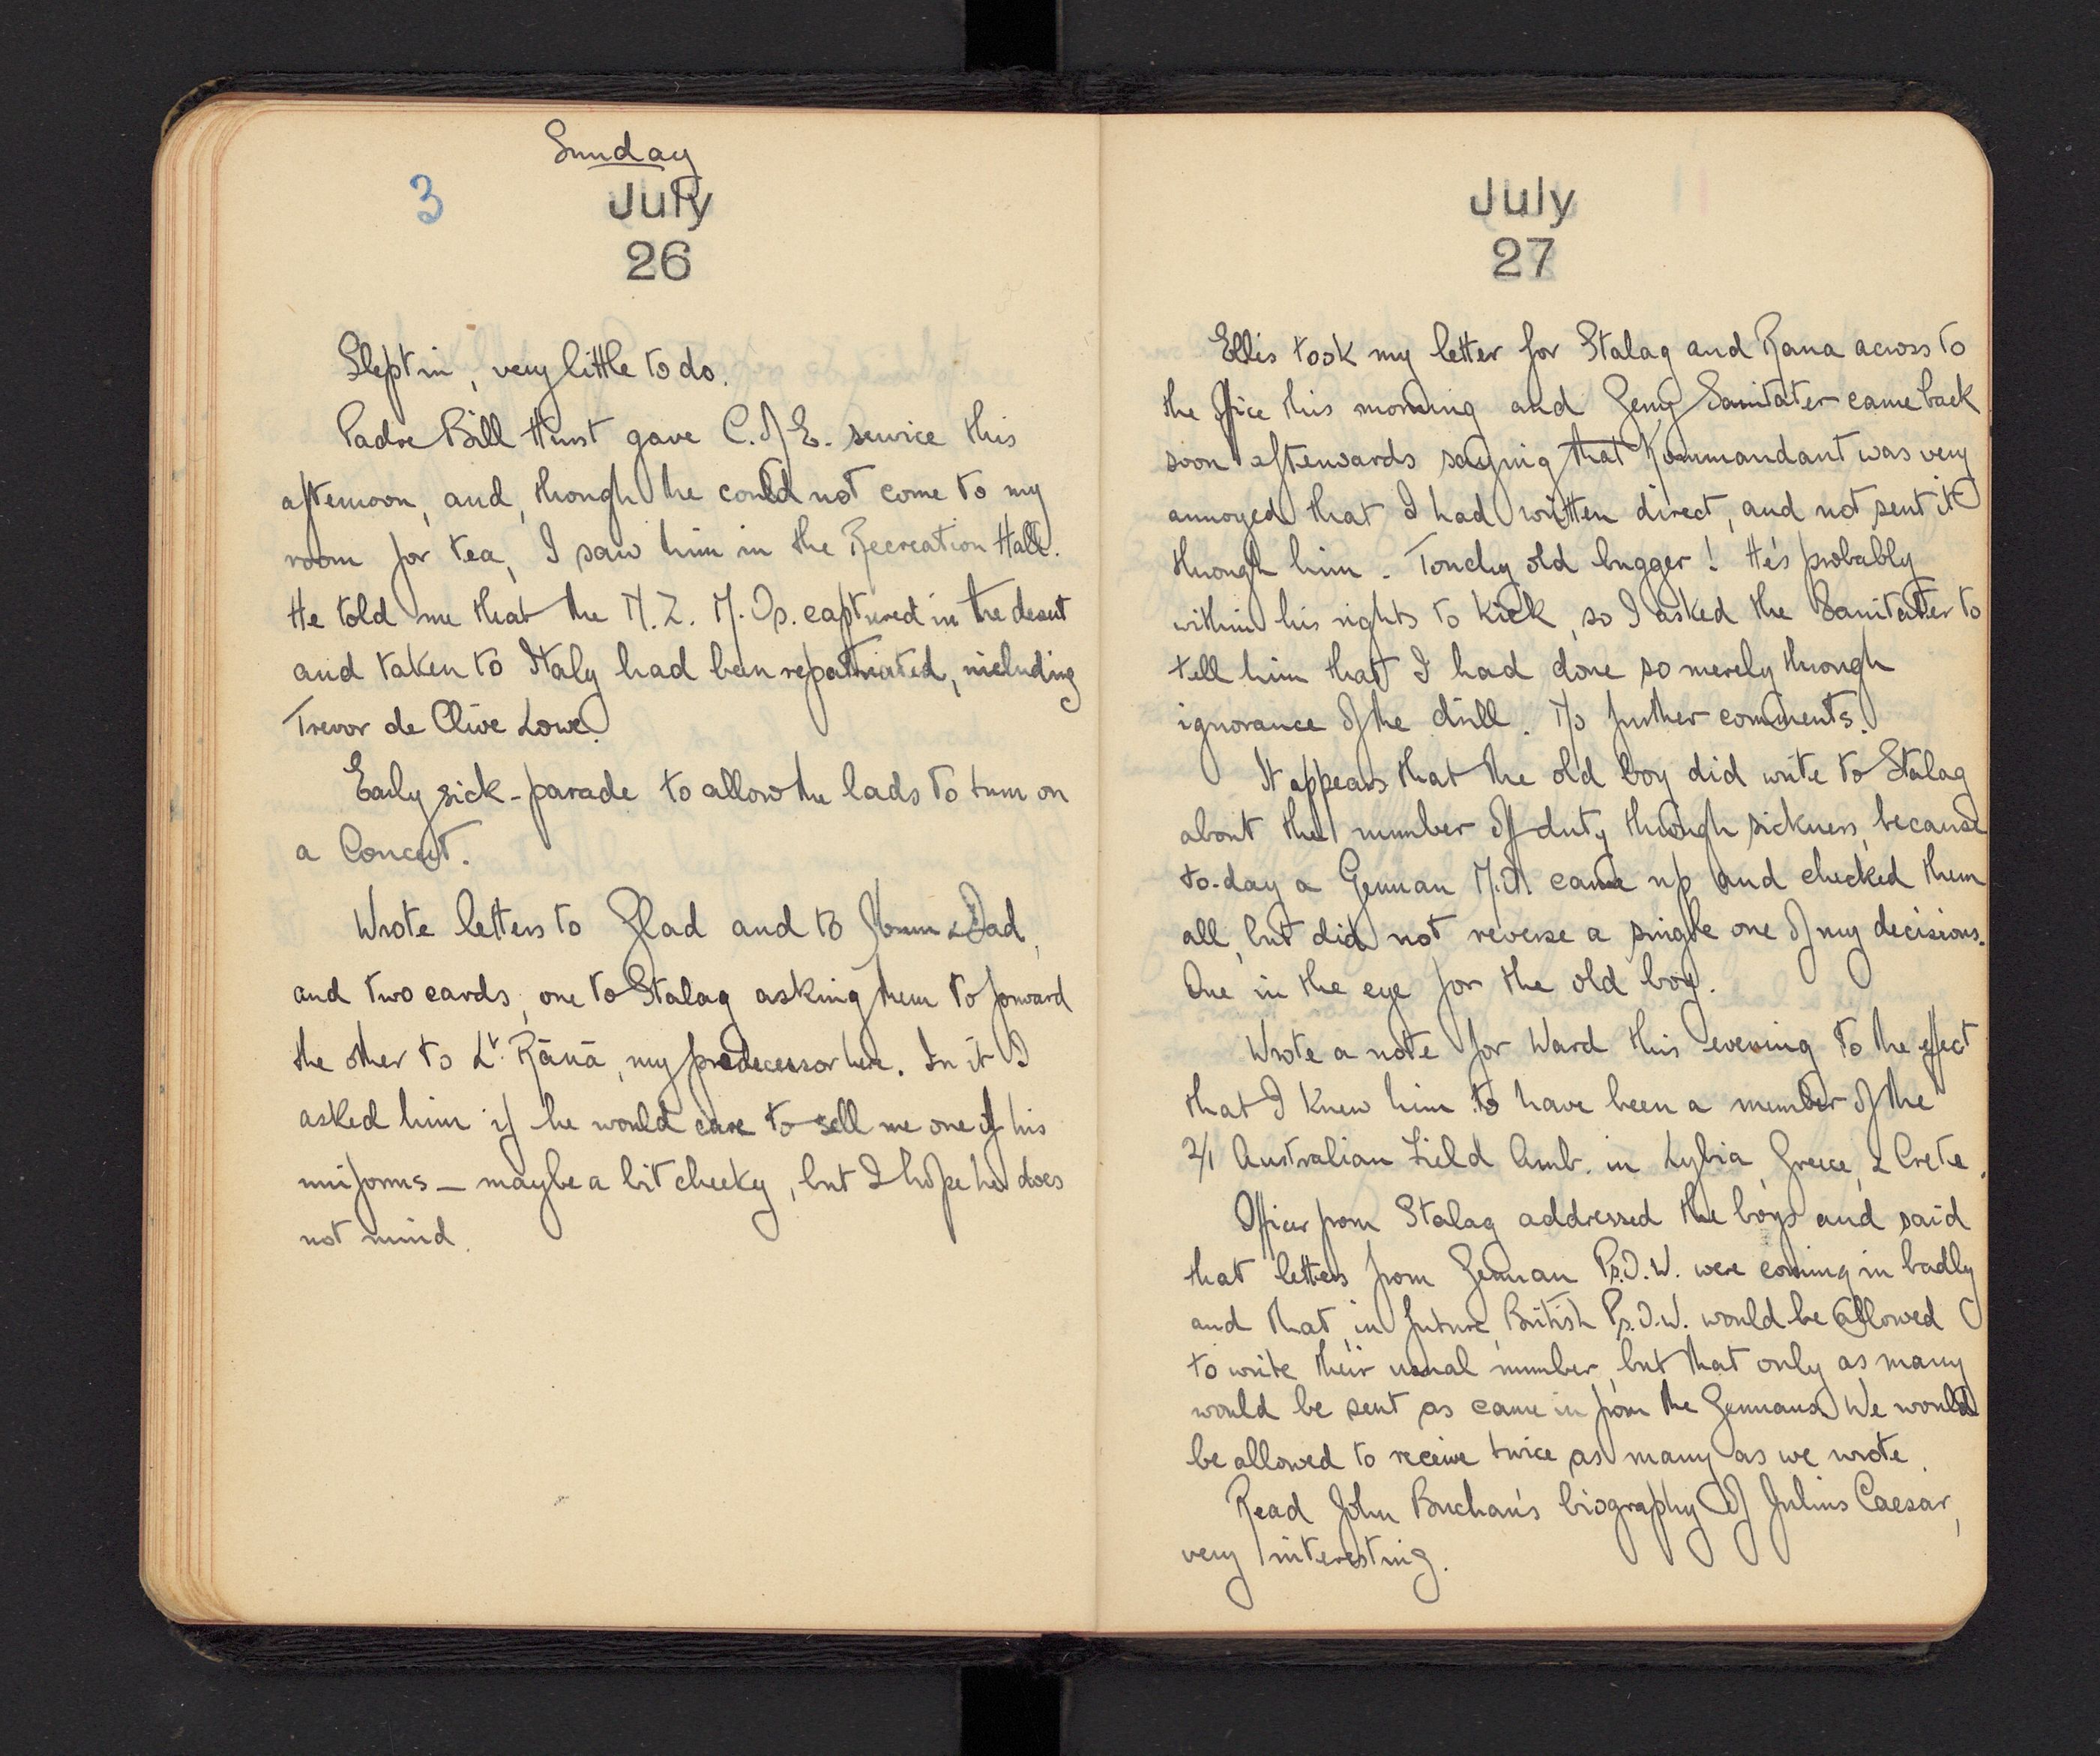 Sunday
3
July
26
Slept in, very little to do.
Padre Bill Hurst gave C. of E. service this
afternoon, and, though he could not come to my
room for tea, I saw him in the Recreation Hall.
He told me that the N.Z. M.Os. captured in the desert
and taken to Italy had been repatriated, including
Trevor de Clive Lowe.
Early sick-parade to allow the lads to turn on
a Concert.
Wrote letters to Glad and to Mum & Dad,
and two cards, one to Stalag asking them to forward
the other to Lt. Rānā, my predecessor here. In it I
asked him if he would care to sell me one of his
uniforms – maybe a bit cheeky, but I hope he does
not mind.
July
27
Ellis took my letter for Stalag and Rana across to
the Office this morning and Sanitater came back
soon afterwards saying that Kommandant was very
annoyed that I had written direct, and not sent it
through him. Touchy old bugger! He's probably
within his rights to kick, so I asked the Sanitater to
tell him that I had done so merely through
ignorance of the drill. No further comments.
It appears that the old boy did write to Stalag
about the number off duty through sickness, because
to-day a German M.O. came up and checked them
all, but did not reverse a single one of my decisions.
One in the eye for the old boy.
Wrote a note for Ward this evening to the effect
that I knew him to have been a member of the
2/1 Australian Field Amb. in Lybia, Greece, & Crete.
Officer from Stalag addressed the boys and said
that letters from German Ps.O.W. were coming in badly
and that, in future, British Ps.O.W. would be allowed
to write their usual number, but that only as many
would be sent as came in from the Germans. We would
be allowed to receive twice as many as we wrote.
Read John Buchan's biography of Julius Caesar,
very interesting.